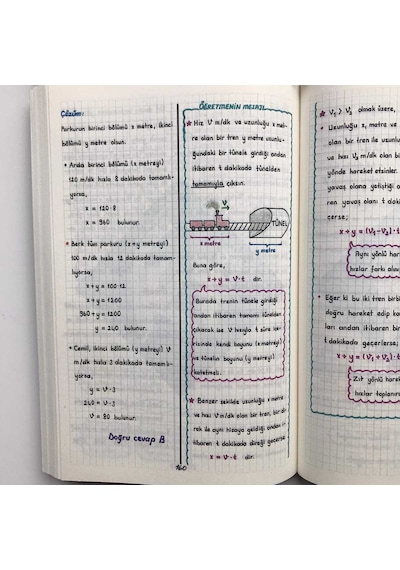 Çözüm:
Parkurun birinci bölümü x metre, ikinci
bölümü y metre olsun.
• Arda birinci bölümü (x metreyi)
120 m/dk hızla 8 dakikada tamamlı-
yorsa,
x = 120·8
x = 960 bulunur.
• Berk tüm parkuru (x+y metreyi)
100 m/dk hızla 12 dakikada tamam-
lıyorsa,
x+y = 100·12
x+y = 1200
960+y = 1200
y = 240 bulunur.
• Cemil, ikinci bölümü (y metreyi) V
m/dk hızla 3 dakikada tamamlı-
yorsa,
y = V·3
240 = V·3
V = 80 bulunur.
Doğru cevap B
160
ÖĞRETMENİN MESAJI
Hız V m/dk ve uzunluğu x met-
re olan bir tren y metre uzunlu-
ğundaki bir tünele girdiği andan
itibaren t dakikada tünelden
tamamıyla çıksın.
V
TÜNEL
x metre
y metre
Buna göre,
x+y = V·t dir.
Burada trenin tünele girdiği
andan itibaren tamamı tünelden
çıkacak ise V hızıyla t süre içe-
risinde kendi boyunu (x metreyi)
ve tünelin boyunu (y metreyi)
katetmeli.
Benzer şekilde uzunluğu x metre
ve hızı V m/dk olan bir tren, bir di-
rek ile aynı hizaya geldiği andan iti-
baren t dakikada direği geçerse
x = V·t dir.
V₁ > V₂ olmak üzere,
• Uzunluğu x metre ve
olan bir tren ile uzunlu
ve hızı V₂ m/dk olan bir
yönde hareket etsinler.
yavaş olana yetiştiği a
ren yavaş olanı t dakik
çerse;
x+y = (V₁-V₂)·t
Aynı yönlü har
hızlar farkı alınır
• Eğer ki bu iki tren birbi
doğru hareket edip ka
ları andan itibaren bir
t dakikada geçerlerse;
x+y = (V₁+V₂)·t
Zıt yönlü hareke
hızlar toplanır